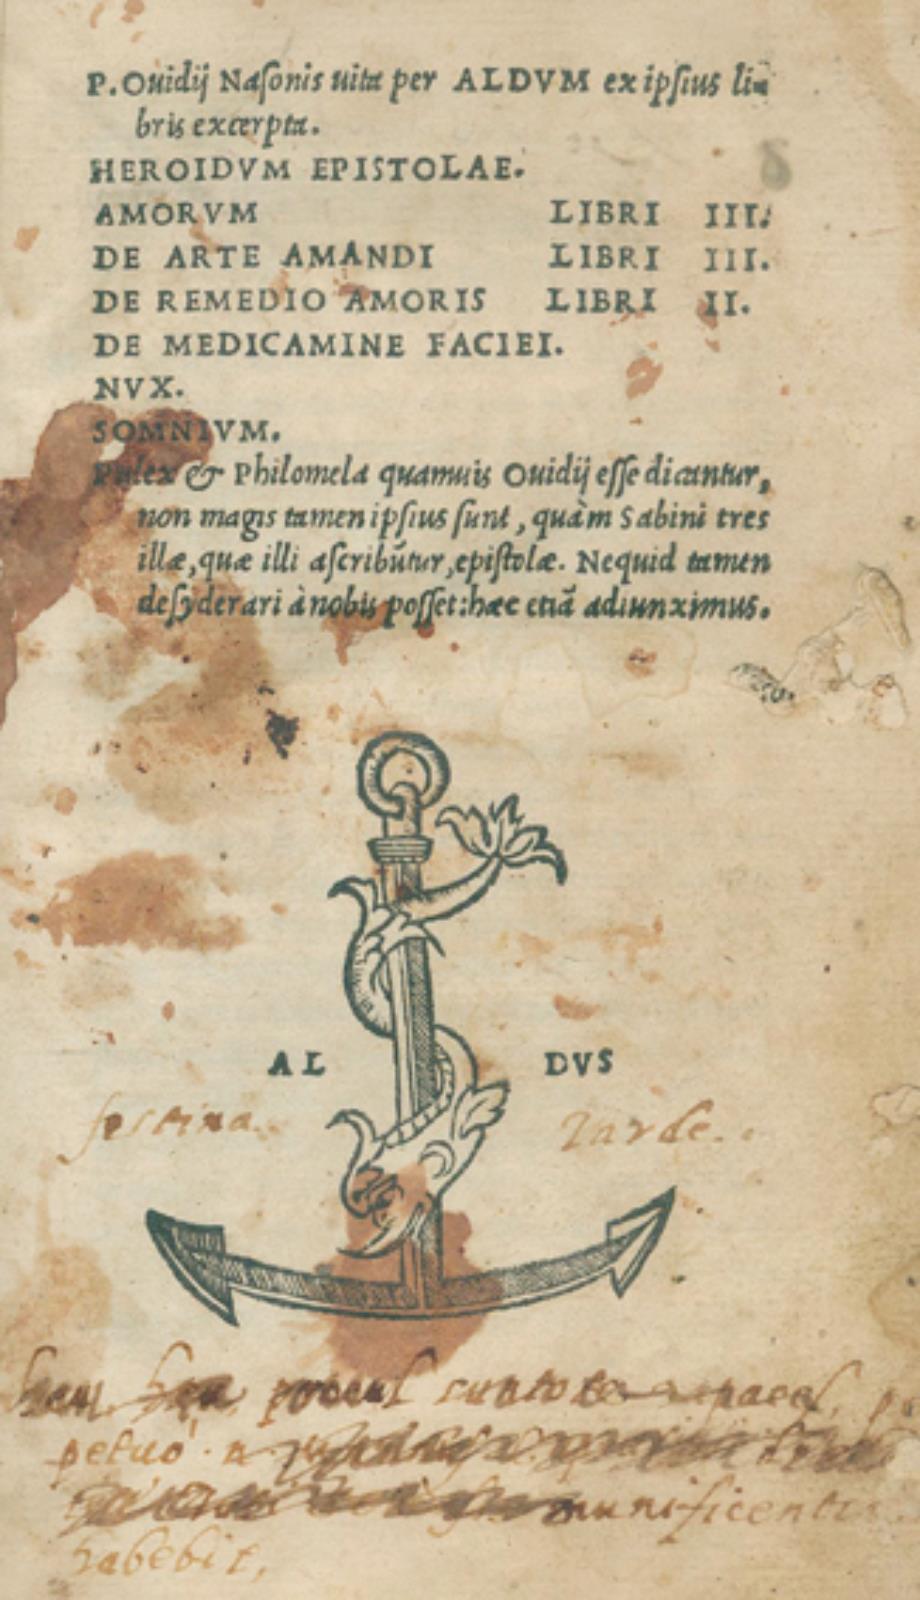 P. Ouidij Nasonis uita per ALDVM ex ipsius li-
bris excerpta.
HEROIDVM EPISTOLAE.
AMORVM LIBRI III.
DE ARTE AMANDI LIBRI III.
DE REMEDIO AMORIS LIBRI II.
DE MEDICAMINE FACIEI.
NVX.
SOMNIVM.
Pulex & Philomela quamuis Ouidij esse dicantur,
non magis tamen ipsius sunt, quàm Sabini tres
illæ, quæ illi ascribũtur, epistolæ. Nequid tamen
desyderari à nobis posset: hæc etiã adiunximus.
AL DVS
festina tarde.
petuò
munificenti
habebit,